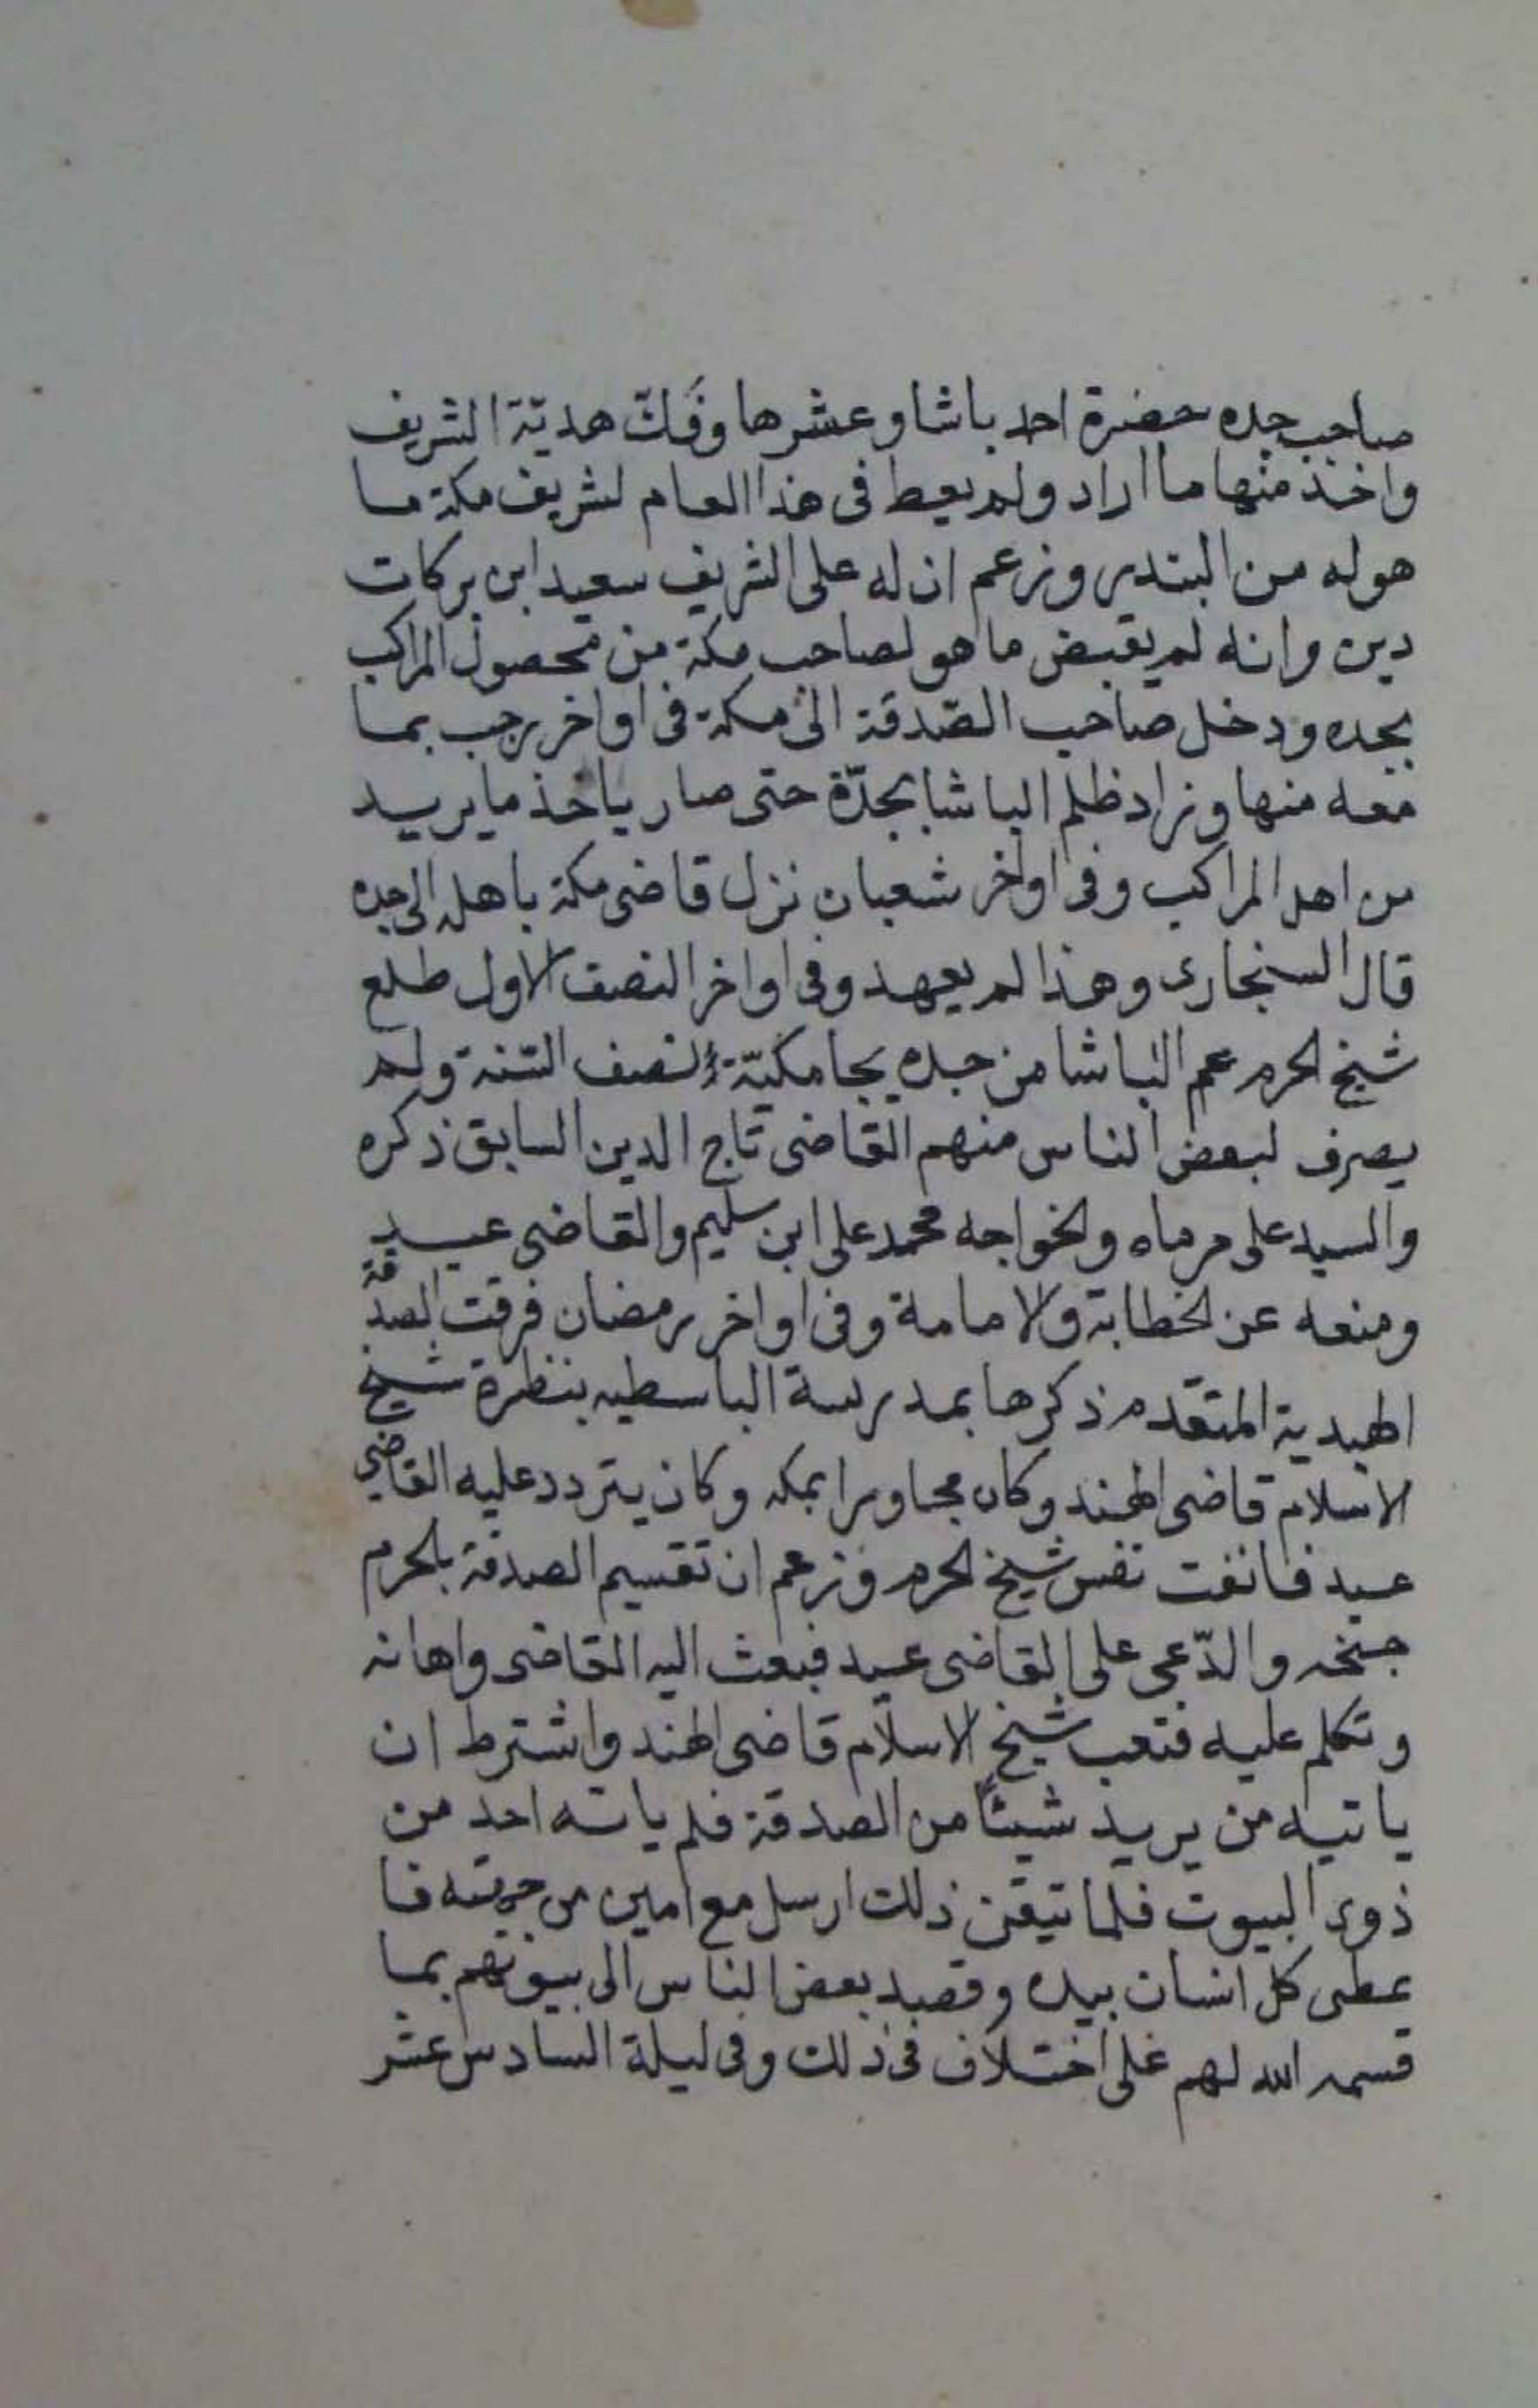 صاحب جده حضرة احمد باشا وعشرها وفكّ هديّة الشريف
واخذ منها ما اراد ولم يعط فى هذا العام لشريف مكة ما
هو له من البندر وزعم ان له على الشريف سعيد ابن بركات
دين وانه لم يقبض ما هو لصاحب مكة من محصول المراكب
بجده ودخل صاحب الصّدقة الى مكة فى اواخر رجب بما
معه منها وزاد ظلم الباشا بجدّة حتى صار ياخذ ما يريد
من اهل المراكب وفى اواخر شعبان نزل قاضى مكة باهله الى جده
قال السنجارى وهذا لم يعهد وفى اواخر النصف الاول طلع
شيخ الحرم عم الباشا من جده بجامكيّة النصف السّنة ولم
يصرف لبعض الناس منهم القاضى تاج الدين السابق ذكره
والسيد على مرماه والخواجه محمد على ابن سليم والقاضى عيد
ومنعه عن الخطابة والامامة وفى اواخر رمضان فرقت الصدقة
الهندية المتقدم ذكرها بمدرسة الباسطيه بنظرة شيخ
الاسلام قاضى الهند وكان مجاورا بمكه وكان يتردد عليه القاضى
عيد فانفت نفس شيخ الحرم وزعم ان تقسيم الصدقة بالحرم
والدّعى على القاضى عيد فبعث اليه القاضى واهانه
وتكلم عليه فتعب شيخ الاسلام قاضى الهند واشترط ان
ياتيه من يريد شيئاً من الصدقة فلم ياته احد من
ذوى البيوت فلما تيقن ذلك ارسل مع امين من جهته فا
عطى كل انسان بيده وقصد بعض الناس الى بيوتهم بما
قسمه الله لهم على اختلاف فى ذلك وفى ليلة السادس عشر